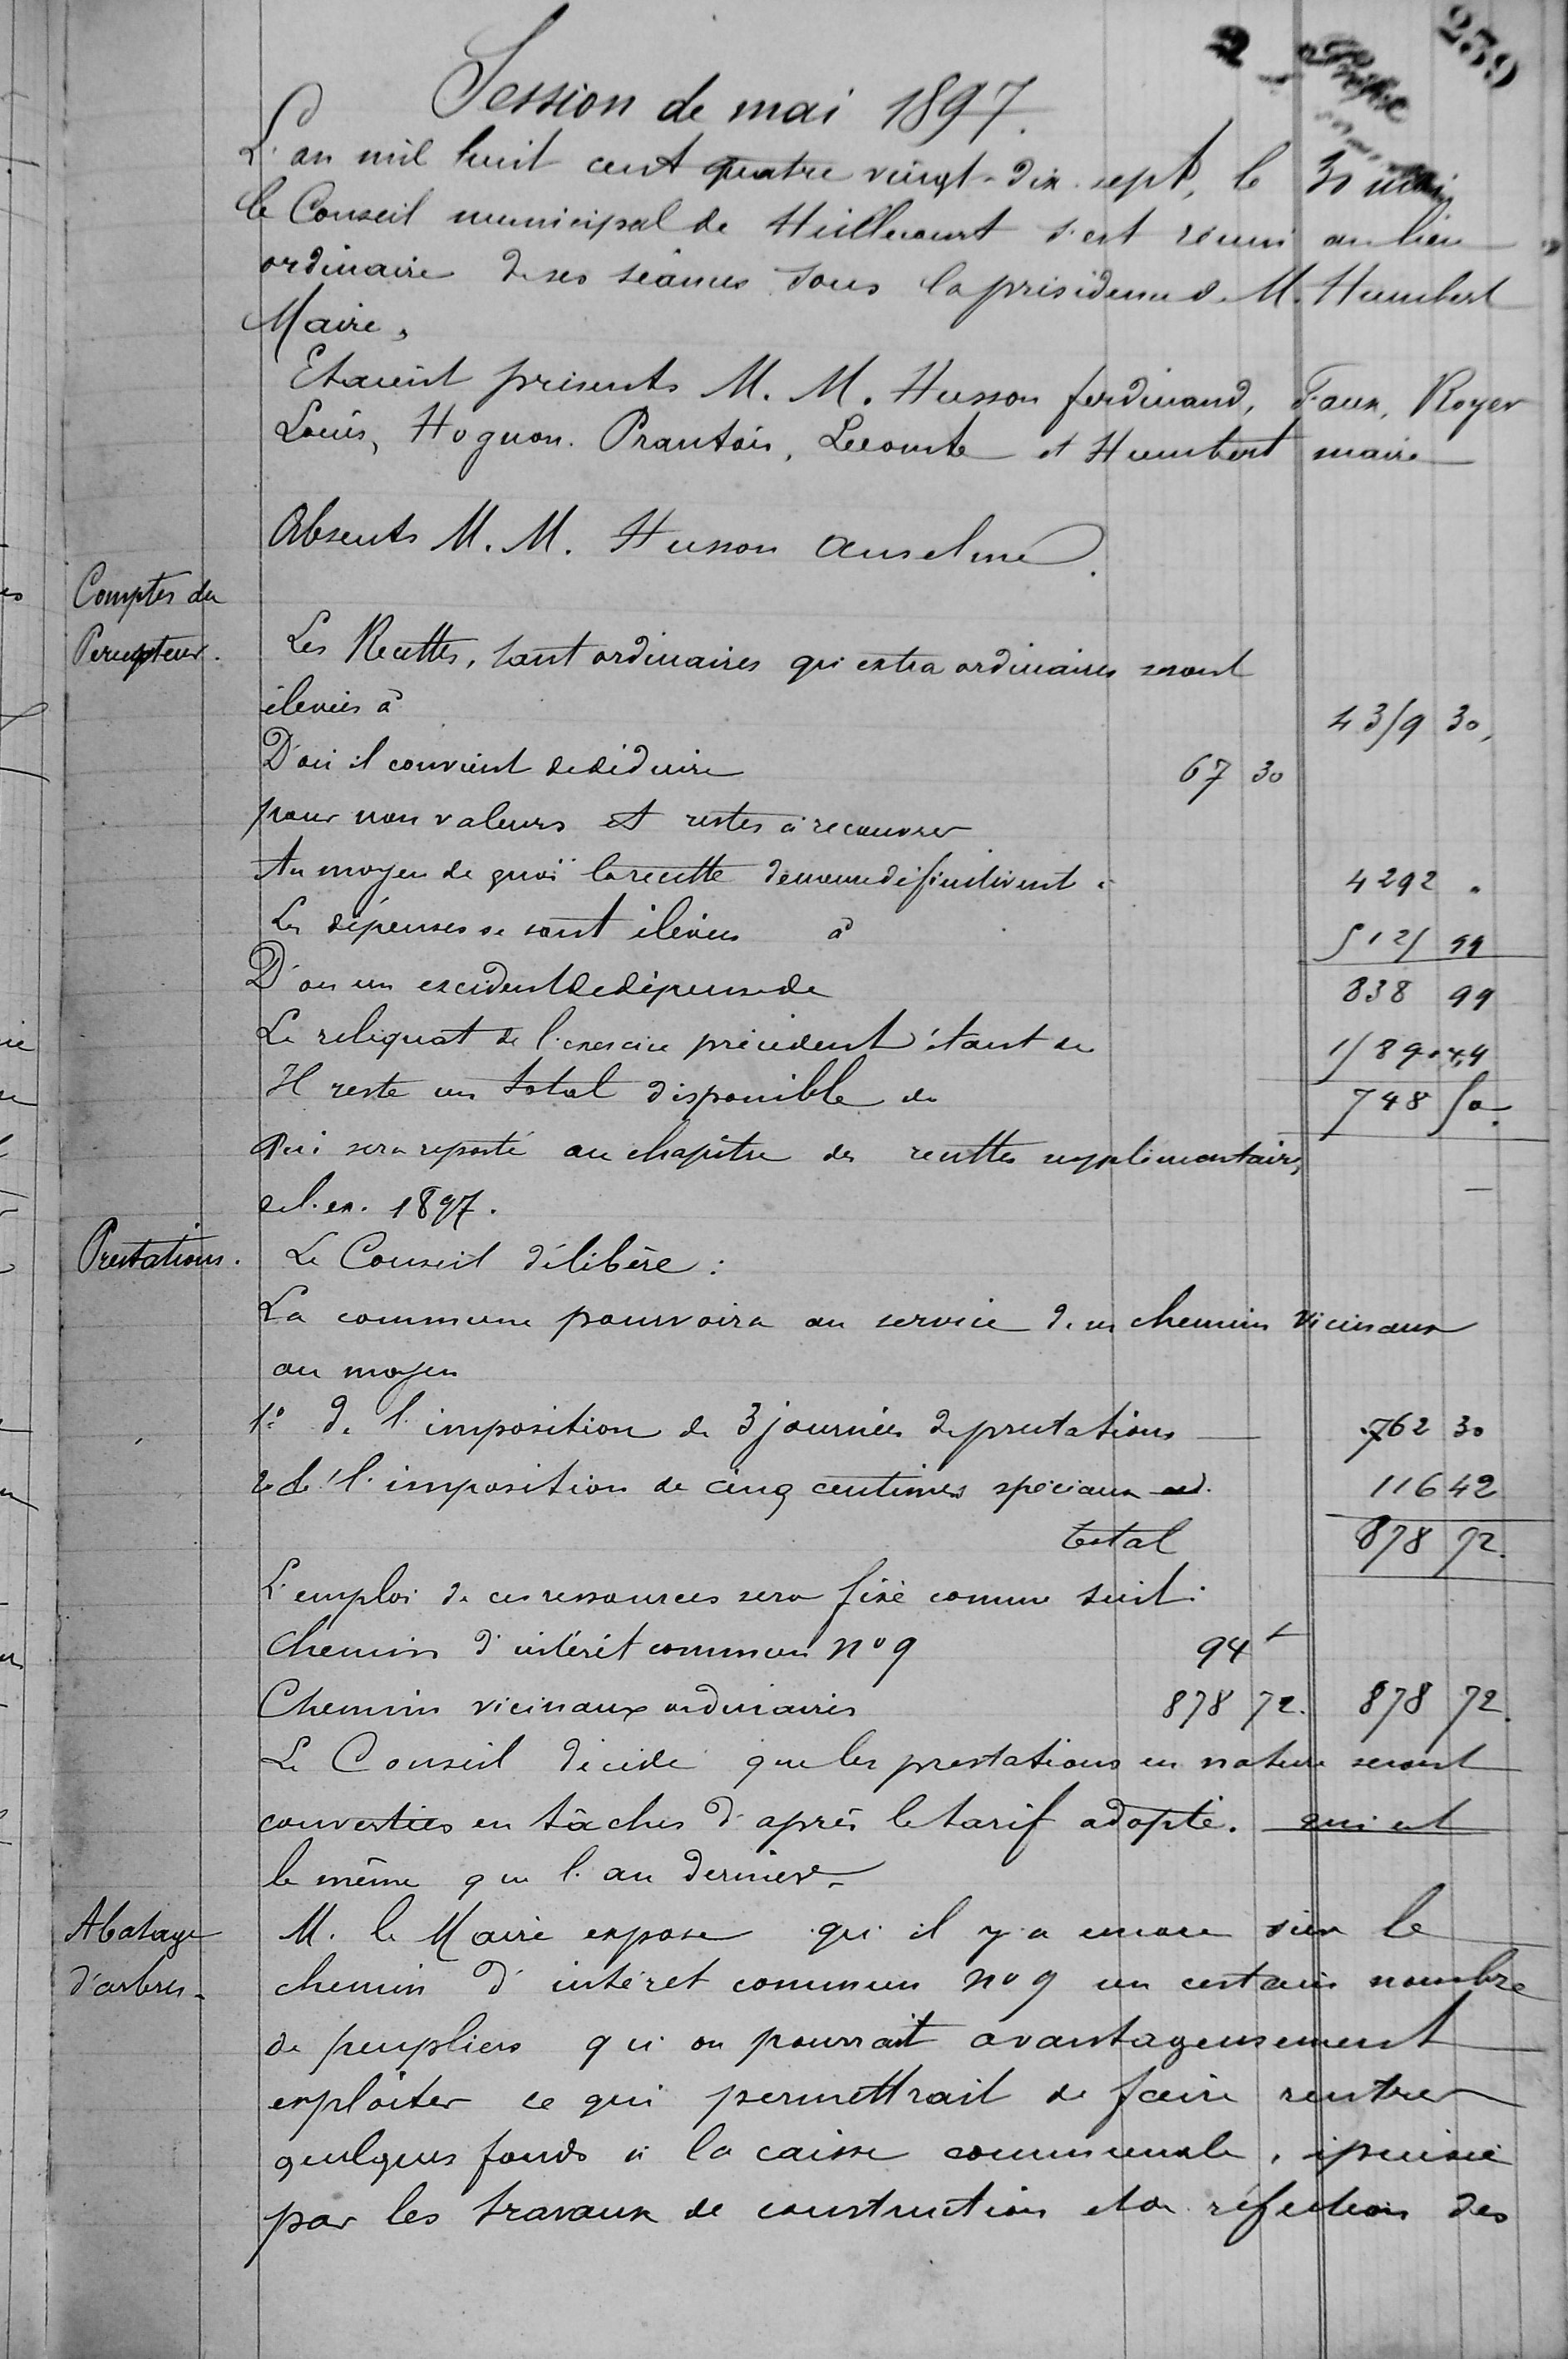 239
2
Session de mai 1897.
L'an mil huit cent quatre vingt-dix-sept, le 30 mai
le Conseil municipal de Huilliecourt s'est réuni au lieu
ordinaire de ses séances sous la présidence de M. Humbert
Maire,
Etaient présents M. M. Husson ferdinand, Faux, Royer
Louis, Hognon. Prautois, Lecomte et Humbert maire
Absents M. M. Husson Anselme.
Comptes du
Percepteur.
Les Recettes, tant ordinaires qu'extraordinaires se sont
élevées à 4359 30,
D'où il convient de déduire 67 30
pour non valeurs et restes à recouvrer
Au moyen de quoi la recette demeure définitivent à 4292 "
Les dépenses se sont élevées à 5125 99
D'où un excédent de dépense de 838 99
Le reliquat de l'exercice précédent étant de 1589.49
Il reste un total disponible de 748 50.
Qui sera reporté au chapitre des recettes supplémentaires
de l'ex. 1897.
Prestations.
Le Conseil délibère :
La commune pourvoira au service de ses chemins vicinaux
au moyen
1º de l'imposition de 3 journées de prestations 762 30
2º de l'imposition de cinq centimes spéciaux 116 42
total 878 72.
L'emploi de ces ressources sera fixé comme suit:
Chemin d'intérêt commun nº 9 94
Chemins vicinaux ordinaires 878 72. 878 72.
Le Conseil décide que les prestations en nature seront
converties en tâches d'après le tarif adopté. qui est
le même que l'an dernier.
Abatage
d'arbres.
M. le Maire expose qu'il y a encore sur le
chemin d'intérêt commun nº 9 un certain nombre
de peupliers qu'on pourrait avantageusement
exploiter ce qui permettrait de faire rentrer
quelques fonds à la caisse communale, épuisée
par les travaux de construction et de réfection des